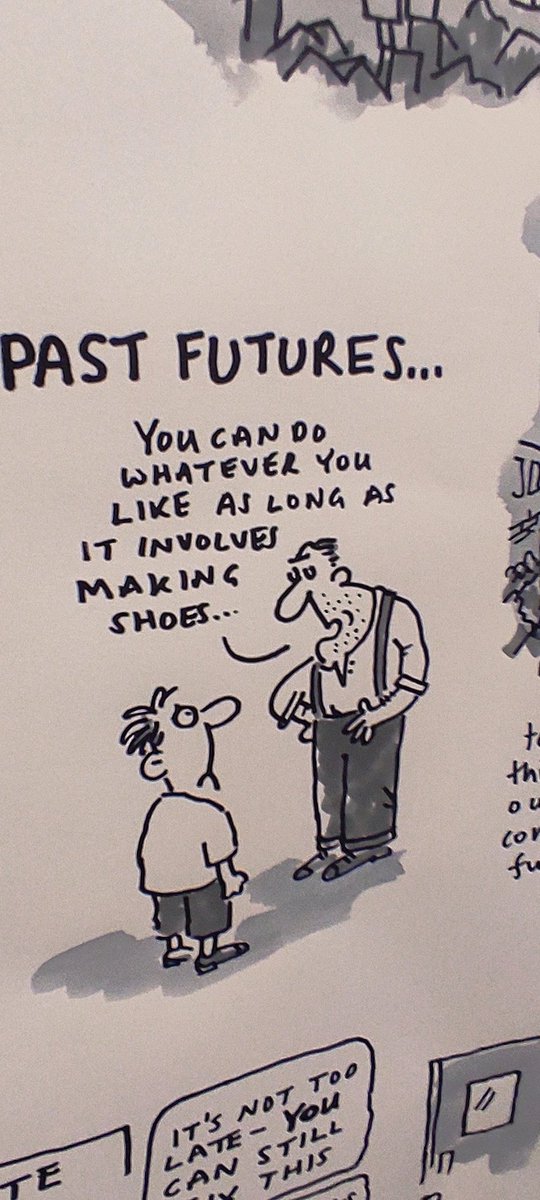 PAST FUTURES...
YOU CAN DO
WHATEVER YOU
LIKE AS LONG AS
IT INVOLVES
MAKING
SHOES...
IT'S NOT TOO
LATE - YOU
CAN STILL
THIS
TE